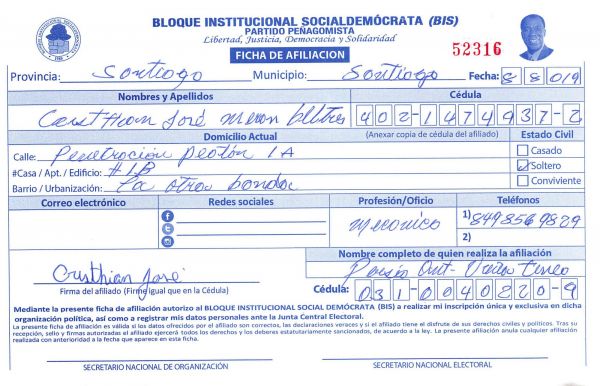 BLOQUE INSTITUCIONAL SOCIALDEMÓCRATA (BIS)
PARTIDO PEÑAGOMISTA
Libertad, Justicia, Democracia y Solidaridad
FICHA DE AFILIACION
52316
Provincia: Santiago Municipio: Santiago Fecha: 8 8 019
Nombres y Apellidos Cédula
José 402-1474937-2
Domicilio Actual (Anexar copia de cédula del afiliado) Estado Civil
Calle: Penetración peatón 1A Casado
#Casa / Apt. / Edificio: #1B Soltero
Barrio / Urbanización: La otra banda Conviviente
Correo electrónico Redes sociales Profesión/Oficio Teléfonos
Mecanico 1) 8498569829
2)
Nombre completo de quien realiza la afiliación
Cristhian José
Firma del afiliado (Firma igual que en la Cédula) Cédula: 031-0040820-9
Mediante la presente ficha de afiliación autorizo al BLOQUE INSTITUCIONAL SOCIAL DEMÓCRATA (BIS) a realizar mi inscripción única y exclusiva en dicha
organización política, así como a registrar mis datos personales ante la Junta Central Electoral.
La presente ficha de afiliación es válida si los datos ofrecidos por el afiliado son correctos, las declaraciones veraces y si el afiliado tiene el disfrute de sus derechos civiles y políticos. Tras su
recepción, sello y firmas autorizadas el afiliado ejercerá todos los derechos y los deberes estatutariamente sancionados, de acuerdo a la ley. La presente afiliación anula cualquier afiliación
realizada con anterioridad a la fecha que aparece en esta ficha.
SECRETARIO NACIONAL DE ORGANIZACIÓN SECRETARIO NACIONAL ELECTORAL